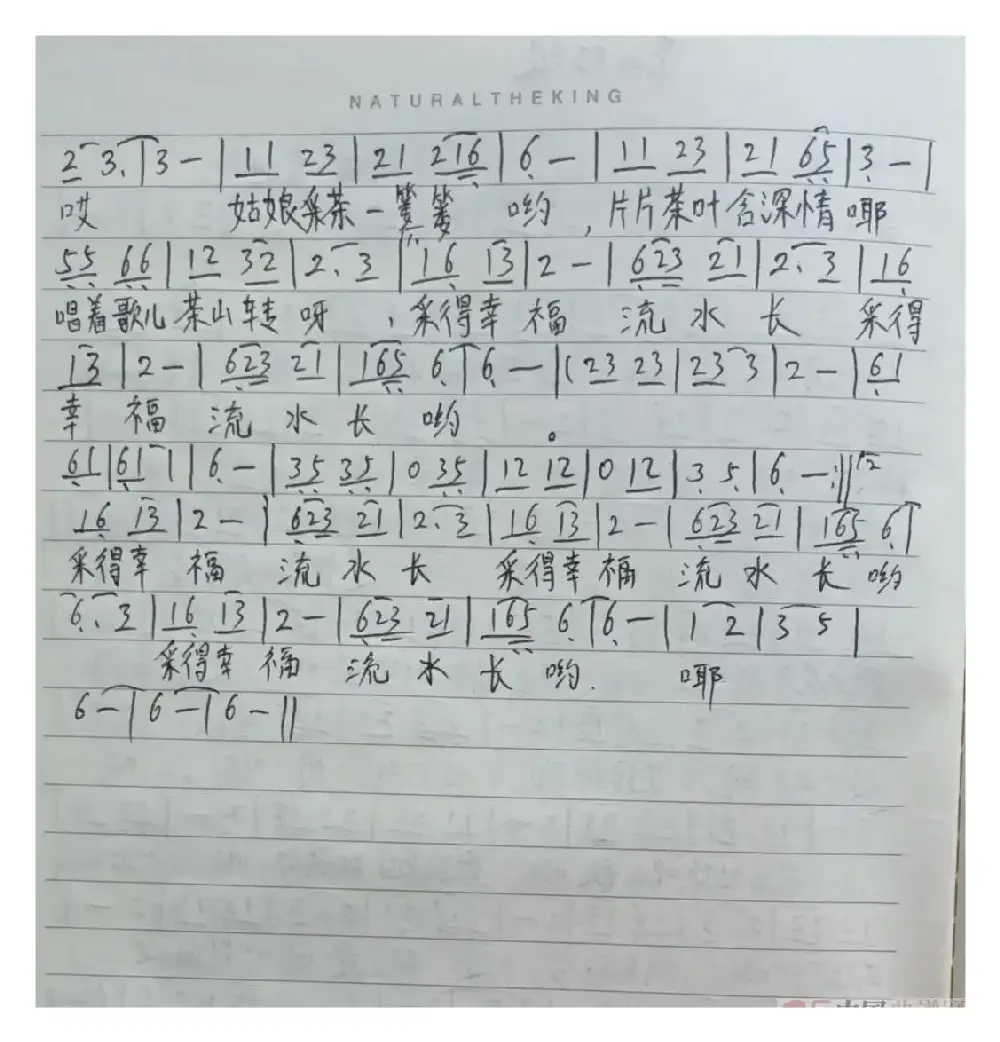 NATURALTHEKING
2 3. | 3 - | 11 23 | 21 216 | 6 - | 11 23 | 21 65 | 3 - |
哎 姑娘采茶一篓篓 哟 , 片片茶叶含深情 喲
55 66 | 12 32 | 2. 3 | 16 13 | 2 - | 623 21 | 2. 3 | 16
唱着歌儿茶山转 呀 , 采得幸 福 流 水 长 采得
13 | 2 - | 623 21 | 165 6 | 6 - | (23 23 | 23 3 | 2 - | 61
幸 福 流 水 长 哟 。
61 | 61 1 | 6 - | 35 35 | 0 35 | 12 12 | 0 12 | 3 5 | 6 - :||
16 13 | 2 - | 623 21 | 2. 3 | 16 13 | 2 - | 623 21 | 165 6 |
采得幸 福 流 水 长 采得幸 福 流 水 长 哟
6. 3 | 16 13 | 2 - | 623 21 | 165 6 | 6 - | 1 2 | 3 5 |
采得幸 福 流 水 长 哟. 耶
6 - | 6 - | 6 - ||